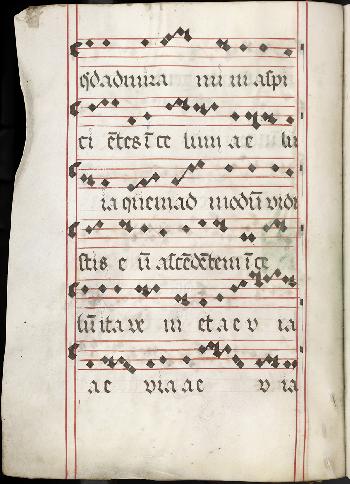 qd admira mi ni aspi
ci ẽtes ĩ ce lum a e lu
ia quẽmad modũ vidi
stis e ũ ascẽdẽtem ĩ ce
lũ ita ve ni et a e v ia
a e v ia a e v ia